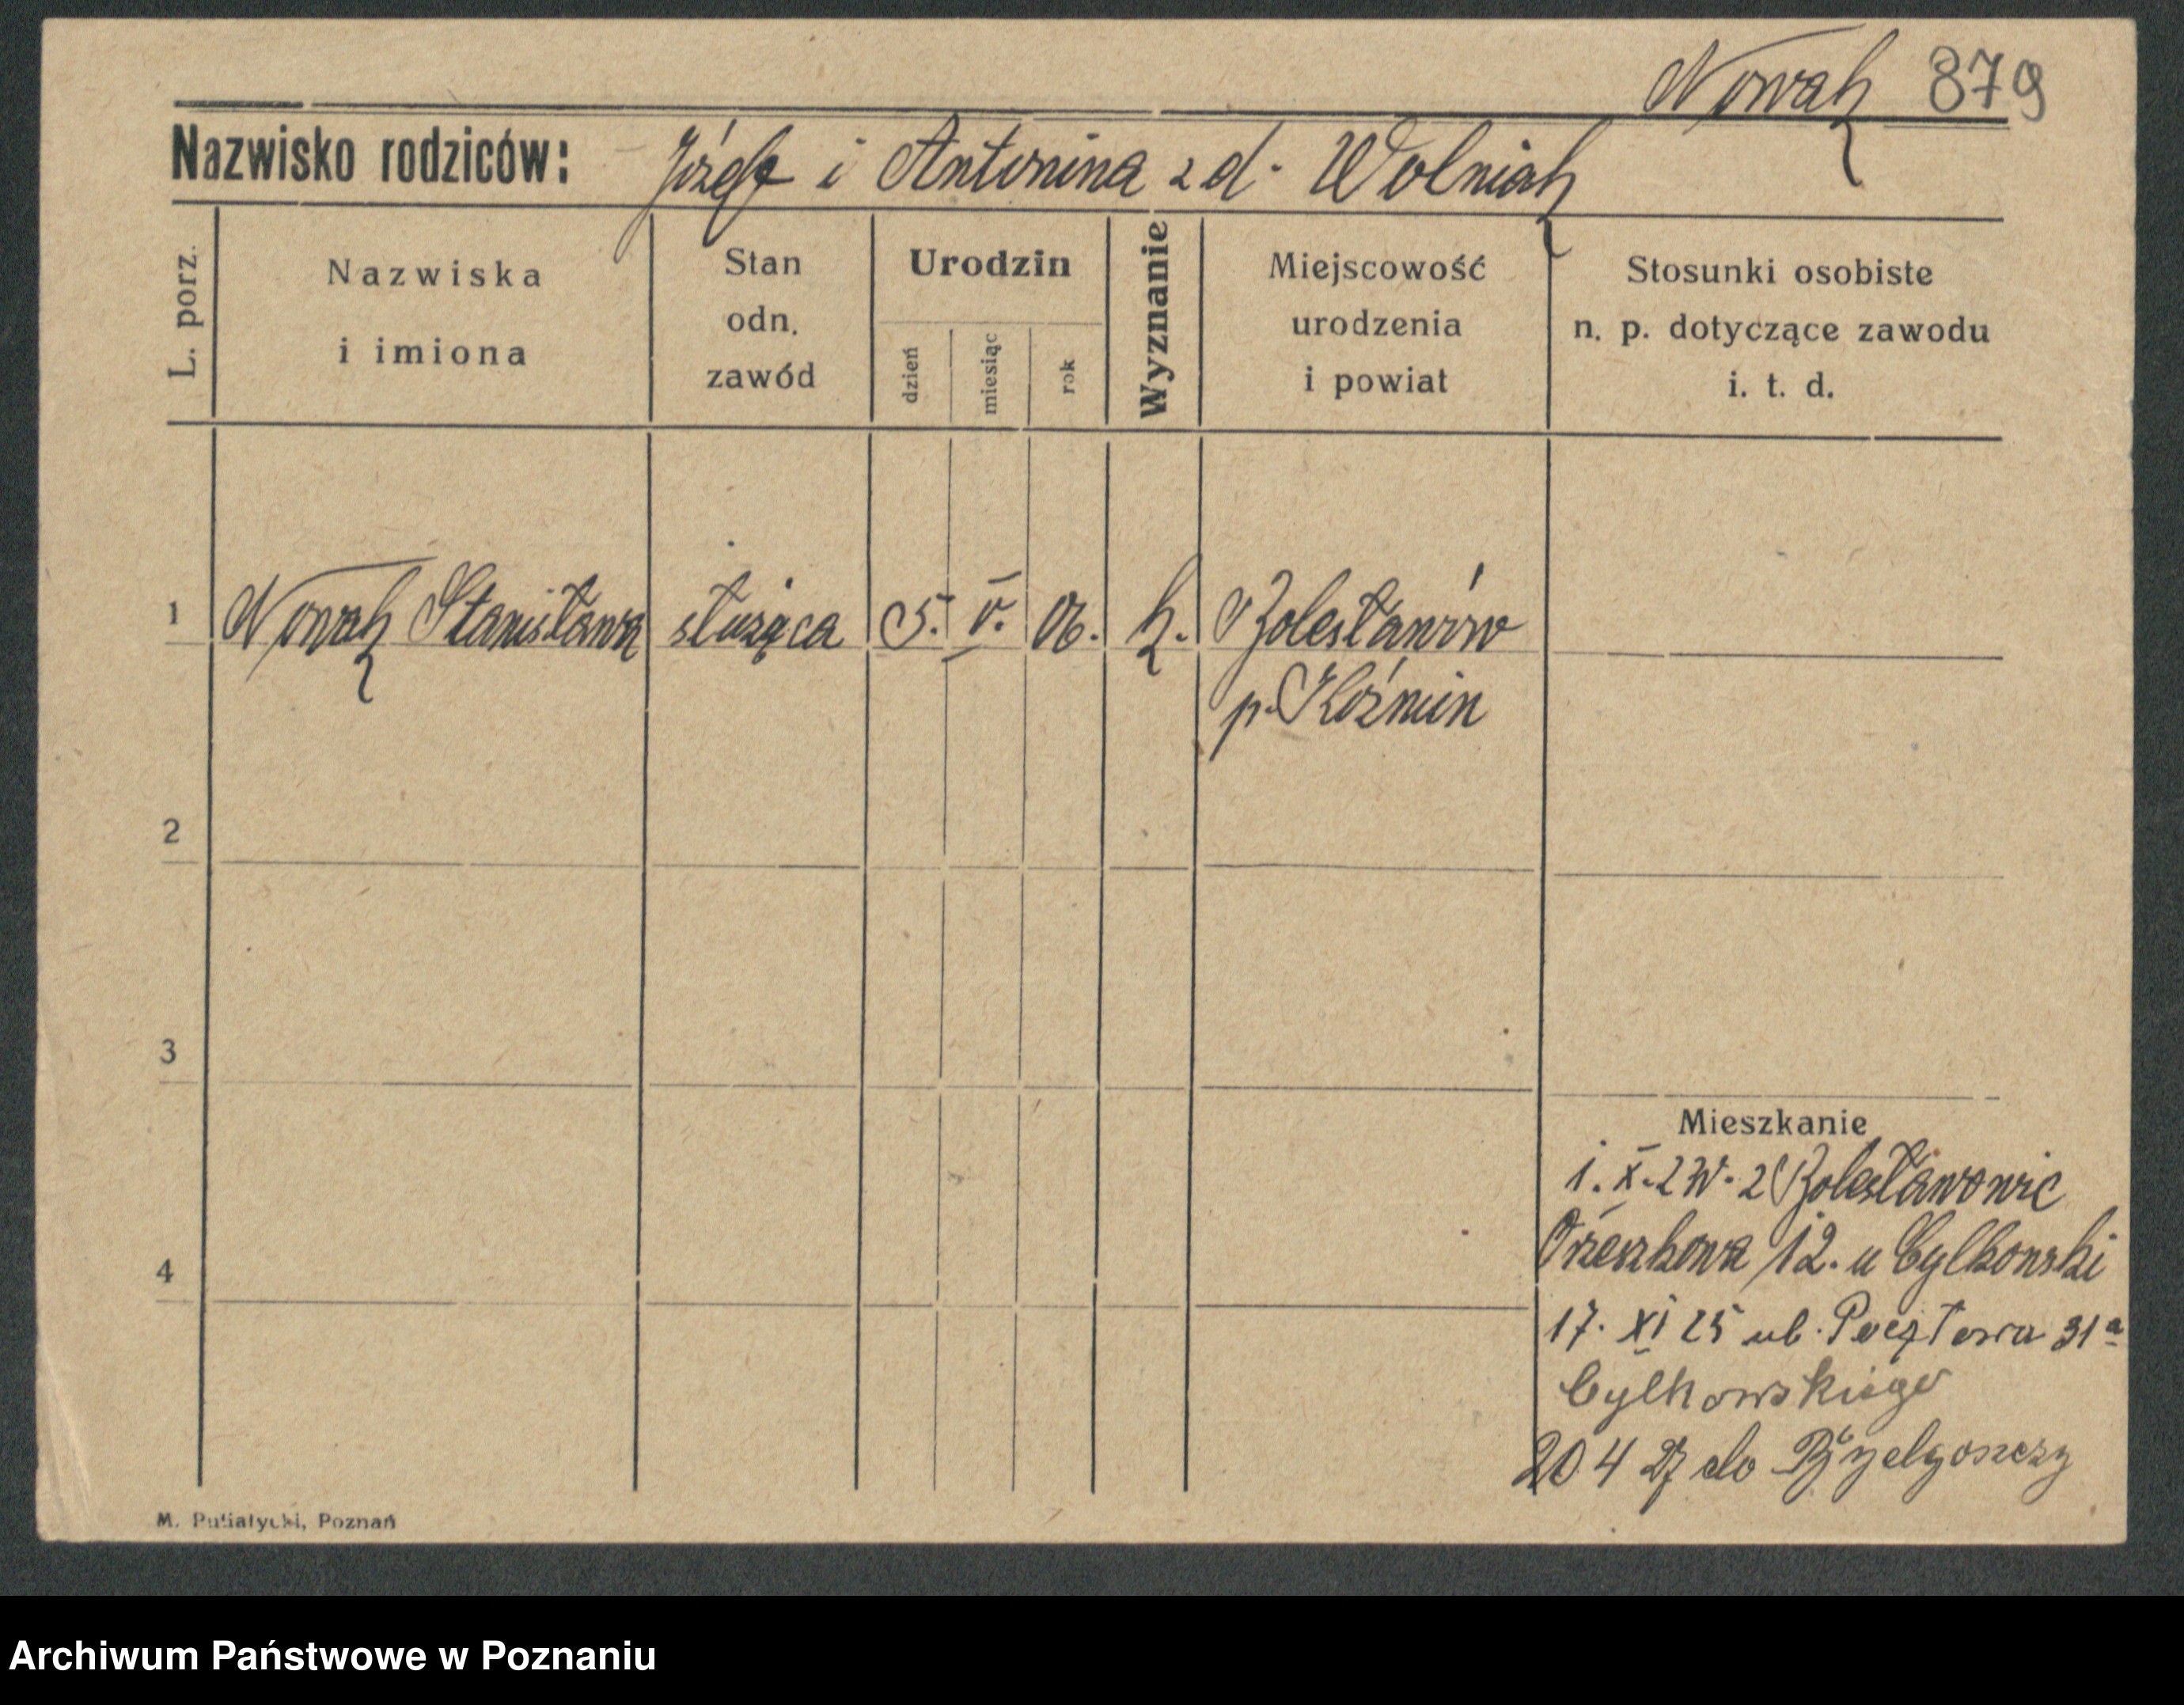 Nowak 879
Nazwisko rodziców: Józef i Antonina z d. Wolniak
L. porz.
Nazwiska
i imiona
Stan
odn.
zawód
Urodzin
dzień
miesiąc
rok
Wyznanie
Miejscowość
urodzenia
i powiat
Stosunki osobiste
n. p. dotyczące zawodu
i. t. d.
1 Nowak Stanisława służąca 5. V. 06. k. Bolesławów
p. Koźmin
2
3
Mieszkanie
1. X. 24. z Bolesławowic
4
Orzeszkowa 12. u Cylkowski
17. XI 25 ul. Pocztowa 31a
Cylkowskiego
20 4 27 do Bydgoszczy
M. Putiatycki, Poznań
Archiwum Państwowe w Poznaniu